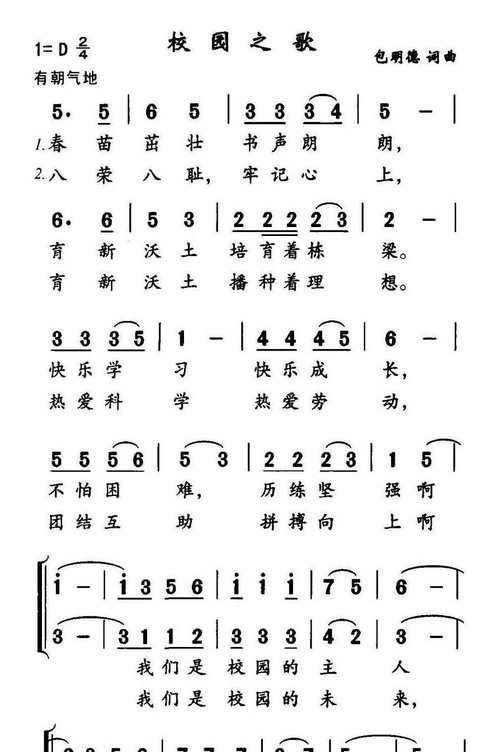 校园之歌
1=D 2/4
包明德 词曲
有朝气地
5. 5 | 6 5 | 3 3 3 4 | 5 – |
1. 春 苗 茁 壮 书 声 朗 朗,
2. 八 荣 八 耻, 牢 记 心 上,
6. 6 | 5 3 | 2 2 2 2 3 | 2 – |
育 新 沃 土 培 育 着 栋 梁。
育 新 沃 土 播 种 着 理 想。
3 3 3 5 | 1 – | 4 4 4 5 | 6 – |
快 乐 学 习 快 乐 成 长,
热 爱 科 学 热 爱 劳 动,
5 5 5 6 | 5 3 | 2 2 2 3 | 1 5 |
不 怕 困 难, 历 练 坚 强 啊
团 结 互 助 拼 搏 向 上 啊
i – | i 3 5 6 | i i i | 7 5 | 6 – |
3 – | 3 1 1 2 | 3 3 3 | 4 2 | 3 – |
我 们 是 校 园 的 主 人
我 们 是 校 园 的 未 来,